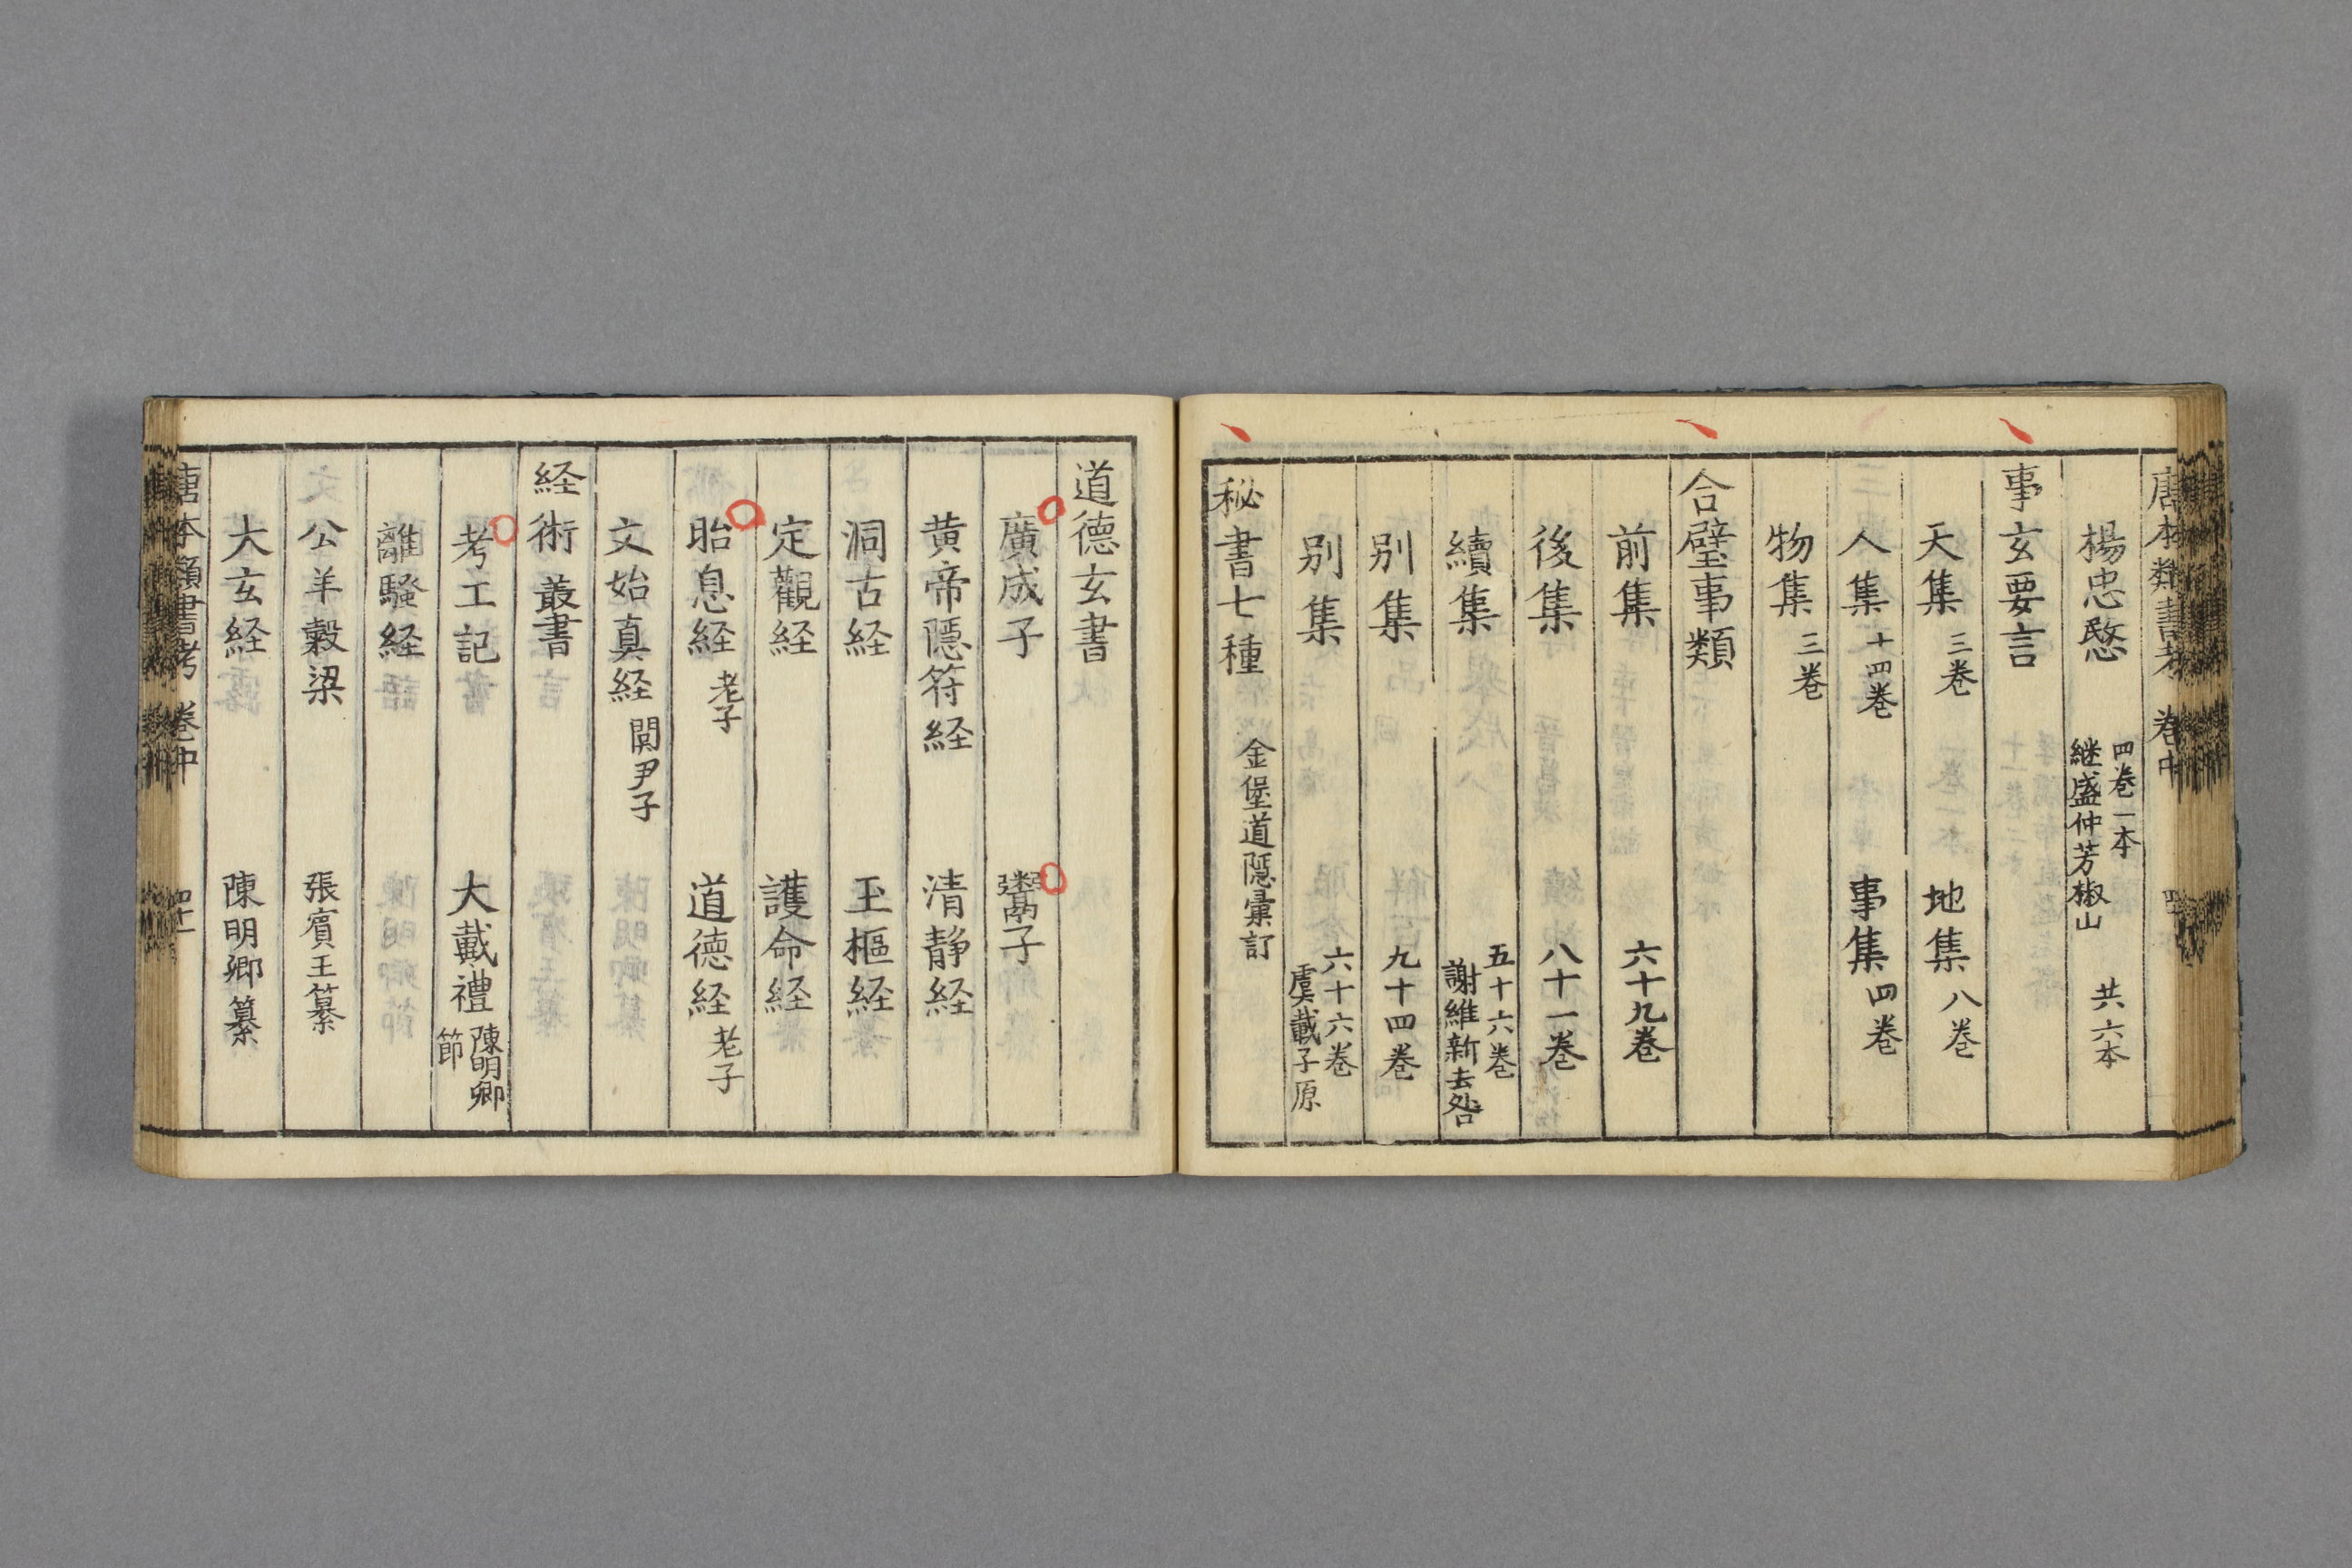 唐本類書考 卷中
楊忠愍 四卷一本 継盛仲芳椒山 共六本
事玄要言
天集 三卷 地集 八卷
人集 十四卷 事集 四卷
物集 三卷
合璧事類
前集 六十九卷
後集 八十一卷
續集 五十六卷 謝維新去咎
別集 九十四卷
別集 六十六卷 虞載子原
秘書七種 金堡道隱彙訂
道德玄書
廣成子 鬻子
黄帝隱符経 清静経
洞古経 玉樞経
定觀経 護命経
胎息経 老子 道德経 老子
文始真経 関尹子
経術叢書
考工記 大戴禮 陳明卿節
離騷経
公羊穀梁 張賓王纂
大玄経 陳明卿纂
唐本類書考 卷中